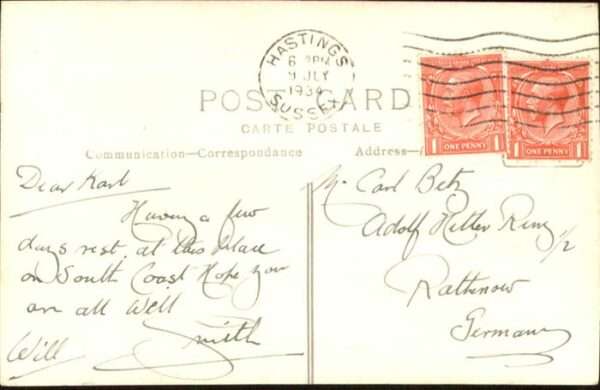 HASTINGS
SUSSEX
6 PM
9 JLY
1934
POST CARD
CARTE POSTALE
Communication—Correspondence
Address—
ONE PENNY
1 1
ONE PENNY
1 1
Dear Karl
Having a few
days rest at this place
on South Coast Hope you
are all Well
Will Smith
Mr Carl Betz
Adolf Hitler Ring 1/2
Rathenow
Germany